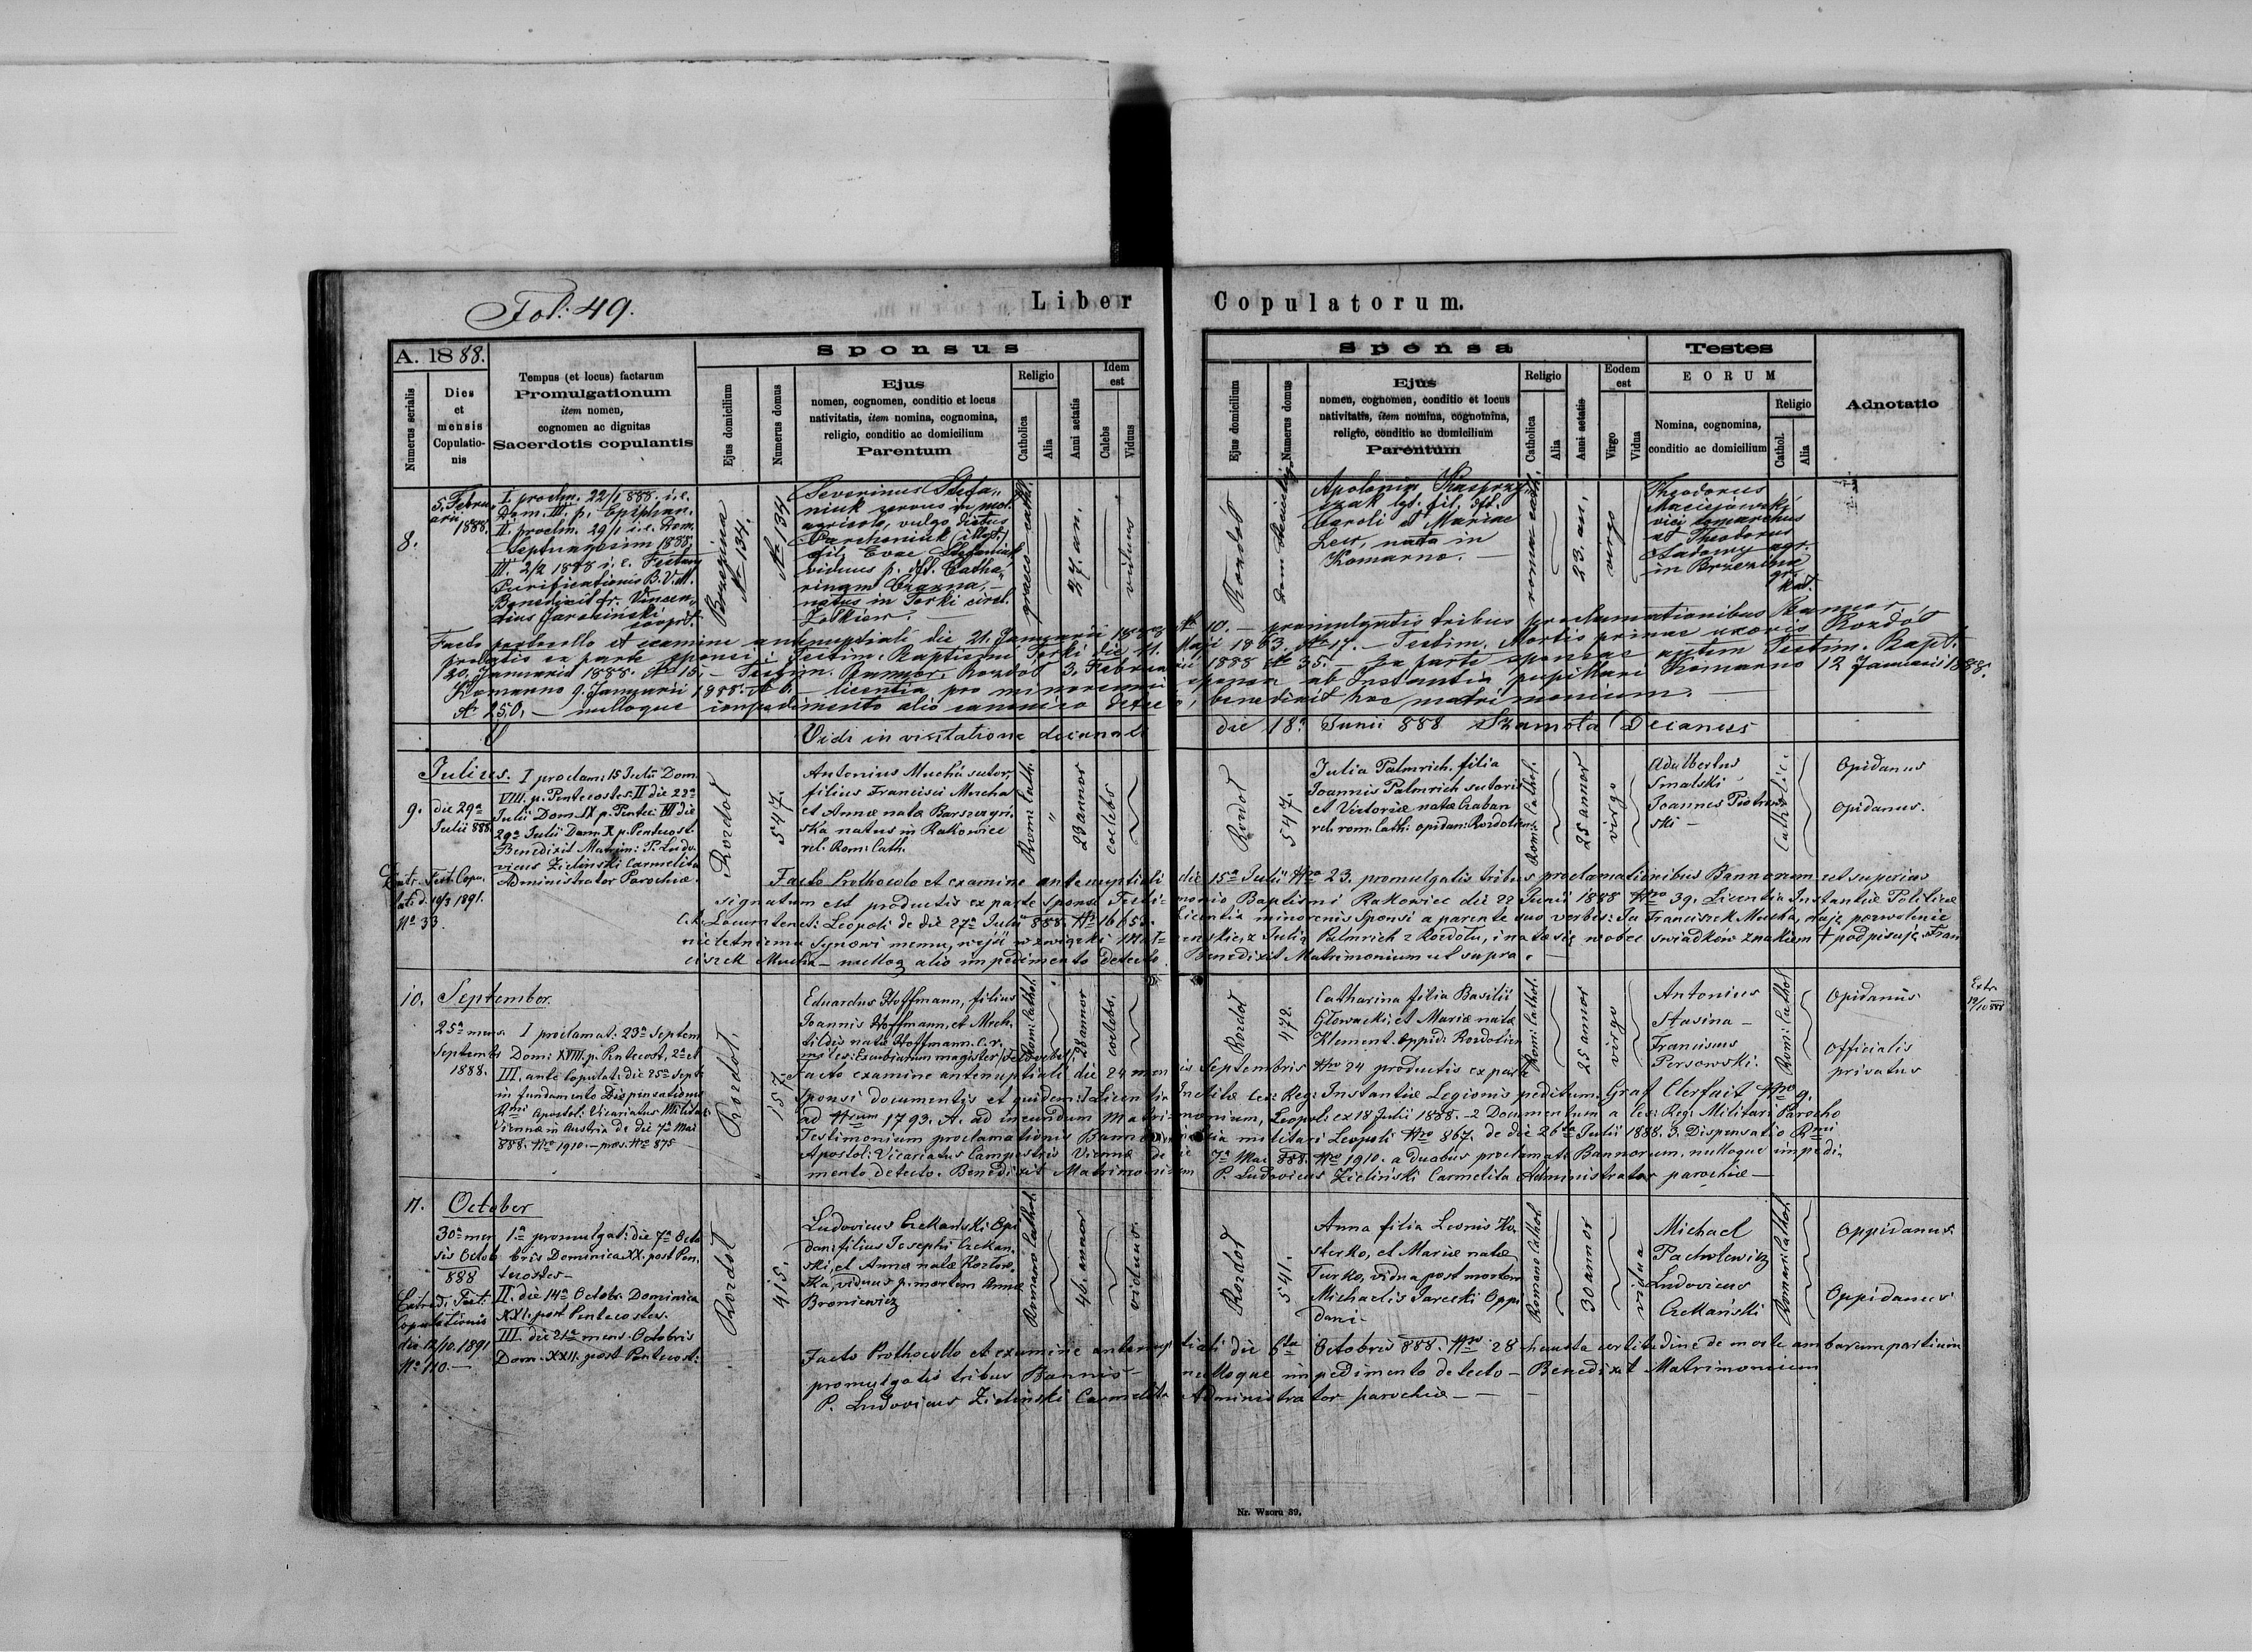 Fol: 49.
Liber Copulatorum.
A. 1888.
Numerus serialis
Dies et mensis Copulationis
Tempus (et locus) factarum
Promulgationum
item nomen,
cognomen ac dignitas
Sacerdotis copulantis
Sponsus
Ejus domicilium
Numerus domus
Ejus
nomen, cognomen, conditio et locus
nativitatis, item nomina, cognomina,
religio, conditio ac domicilium
Parentum
Religio
Catholica
Alia
Anni aetatis
Idem est
Calebs
Viduus
Sponsa
Ejus domicilium
Numerus domus
Ejus
nomen, cognomen, conditio et locus
nativitatis, item nomina, cognomina,
religio, conditio ac domicilium
Parentum
Religio
Catholica
Alia
Anni aetatis
Eodem est
Virgo
Vidua
Testes
EORUM
Nomina, cognomina,
conditio ac domicilium
Religio
Cathol.
Alia
Adnotatio
8.
5. Februarii
1888.
I proclm. 22/1 888. i.e.
Dom. III. p. Epiphan.
II. proclm. 29/1 i.e. Dom.
Septuagesim 1888;
III. 2/2 1888 i.e. Festum
Purificationis B.V.M.
Benedixit fr. Vincen
tius Jarosiński
cooprt.
Brzezina
No 134.
No 134
Severinus Stefa„
niuk
agricola, vulgo dictus
fil. Evae Stefaniuk
viduus p. dfl. Catha„
rinam Czarna,
natus in Torki circl.
Żółkiew.
graeco cath.
27. an.
viduus
Rozdół
Apolonia Kasprzy„
czak lgt. fil. dfl.
Caroli et Mariae
Lew, nata in
Komarno.
roman cath.
23. an.
virgo
Theodorus
Maciejowski
vici
et Theodorus
Sadowy agr.
in Brzezina
gr.
kat.
Facto protocollo et examine antenuptiali die 21. Januarii 1888 No 10. – promulgatis tribus proclamationibus Bannor
prolatis ex parte sponsi: Testim. Baptismi Torki die 11. Maji 1863. No 17. – Testim. Mortis primae uxoris Rozdół
20. Januarii 1888. No 15. – Testim. Bannor. Rozdół 3. Februarii 1888 No 35. – Ex parte sponsae autem Testim. Bapt.
Komarno 9. Januarii 1888. No 6. – licentia pro minorenni sponsa ab Instantia pupillari Komarno 12 Januarii 1888.
No 250, – nulloque impedimento alio canonico detecto, benedixit hoc matrimonium.
Vidi in visitatione decanali die 18a Junii 888 Szamota Decanus
Julius.
9.
die 29a
Julii 888
I proclam: 15 Julii Dom.
VIII. p. Pentecostes. II die 22a
Julii Dom. IX p. Pentec: III die
29a Julii Dom. X p. Pentecost.
Benedixit Matrim: P. Ludo
vicus Zieliński Carmelita
Administrator Parochiae.
Extr. Test. Copu
lati d. 10/3 1891.
No 33
Rozdół
547.
Antonius Mucha sutor,
filius Francisci Mucha
et Annae nata Barszczyń
ska natus in Rakowiec
rel. Rom: Cath.
Rom: Cath.
"
23 annor
coelebs
Rozdół
547.
Julia Palmrich, filia
Joannis Palmrich sutoris
et Victoriae natae Graban
rel. rom. Cath: opidan: Rozdolien
Rom: Cathol.
25 annor
virgo
Adalbertus
Smalski
Joannes Piotrow
ski –
Catholic.
Opidanus
Opidanus.
Facto Prothocolo et examine antenuptiali die 15a Julii Nro 23. promulgatis tribus proclamationibus Bannorum ut superius
signatum est productis ex parte Sponsi Testimonio Baptismi Rakowiec die 22 Junii 1888 Nro 39. Licentia Instantiae Politicae
c.k. Locumtenet: Leopoli de die 27a Julii 888 No 16653. Licentia minorenis Sponsi a parente suo verbis: Ja Franciszek Mucha, daję pozwolenie
nieletniemu Synowi memu, wejść w związki Małżenskie, z Julią Palmrich z Rozdołu, i na to się wobec swiadków znakiem † podpisuję Fran
ciszek Mucha – nulloq alio impedimento detecto Benedixit Matrimonium ut supra.
10.
September.
25a mens.
Septembr
1888.
I proclamat: 23a Septem
Dom: XVIII. p. Pentecost, 2a et
III. ante Copulat: die 25a Sept
in fundamento Dispensationis
Rmi Apostol: Vicariatus Militar:
Viennae in Austria de die 7a Mai
888. Nro 1910. – praes. No 875
Rozdół.
157.
Eduardus Hoffmann, filius
Joannis Hoffmann, et Mech.
tildis nata Hoffmann. C.r.
miles: Excubiarum magister / Feldwebel /
Rom: Cathol.
28 annor
coelebs.
Rozdół
472.
Catharina filia Basilii
Głowacki, et Mariae natae
Klement. Oppid: Rozdolien
Rom: Cathol.
25 annor
virgo
Antonius
Stasina –
Franciscus
Persowski.
Rom: Cathol
Opidanus
Officialis
privatus
Extr.
19/10 888
Facto examine antenuptiali die 24 mensis Septembris Nro 24 productis ex parte
Sponsi documentis et quidem: 1. Licentia Inclitae Ces: Reg: Instantiae Legionis peditum Graf Clerfait Nro 9.
ad Nrum 1793. A. ad ineundum Matrimonium, Leopoli ex 18 Julii 1888. – 2 Documentum a Ces: Reg: Militari Parocho
Testimonium proclamationis Bannorum militari Leopoli Nro 867. de die 26ta Julii 1888. 3. Dispensatio Rmi
Apostol: Vicariatus Campestris Viennae de die 7a Mai 888. Nro 1910. a duabus proclamat: Bannorum, nulloque impedi„
mento detecto. Benedixit Matrimonium P. Ludovicus Zieliński Carmelita Administrator parochiae –
11.
October
30a men
sis Octob
888
1a promulgat: die 7a Octo
bris Dominica XX. post Pen.
tecostes –
II. die 14a Octobr. Dominica
XXI. post Pentecostes.
III. die 21a mens. Octobris
Dom. XXII. post Pentecost:
Extrad: Test:
Copulationis
die 12/10. 1891
No 110. –
Rozdół
415.
Ludovicus Czekański Opi
dan: filius Josephi Czekan.
ski, et Annae natae Kozłow
ska, viduus p. mortem Annae
Broniewicz
Romano Cathol.
40. annor
viduus
Rozdół
541.
Anna filia Leonis Ko.
sterko, et Mariae natae
Turko, vidua post mortem
Michaelis Jarecki Oppi
dani –
Romano Cathol.
30 annor
vidua
Michael
Pacholewicz
Ludovicus
Czekański
Roman: Cathol.
Oppidanus
Oppidanus
Facto Prothocollo et examine antenuptiali die 6ta Octobris 888. Nro 28 hausta certitudine de morte ambarum partium
promulgatis tribus Bannis – nulloque impedimento detecto – Benedixit Matrimonium
P. Ludovicus Zieliński Carmelita Administrator parochiae –
Nr. Wzoru 39.